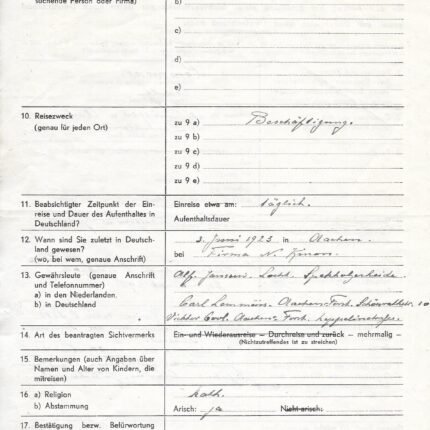 suchende Person oder Firma)
b)
c)
d)
e)
10. Reisezweck
(genau für jeden Ort)
zu 9 a) Beschäftigung.
zu 9 b)
zu 9 c)
zu 9 d)
zu 9 e)
11. Beabsichtigter Zeitpunkt der Ein-
reise und Dauer des Aufenthaltes in
Deutschland?
Einreise etwa am: täglich.
Aufenthaltsdauer
12. Wann sind Sie zuletzt in Deutsch-
land gewesen?
(wo, bei wem, genaue Anschrift)
3. Juni 1923 in Aachen.
bei Firma N.
13. Gewährsleute (genaue Anschrift
und Telefonnummer)
a) in den Niederlanden.
b) in Deutschland
Alf. Jansen. Spekholzerheide.
Carl Lemmens. Aachen, Forst.
Viktor Aachen Forst.
14. Art des beantragten Sichtvermerks
Ein- und Wiederausreise – Durchreise und zurück – mehrmalig –
(Nichtzutreffendes ist zu streichen)
15. Bemerkungen (auch Angaben über
Namen und Alter von Kindern, die
mitreisen)
16. a) Religion
b) Abstammung
kath.
Arisch: ja Nicht arisch:
17. Bestätigung bezw. Befürwortung